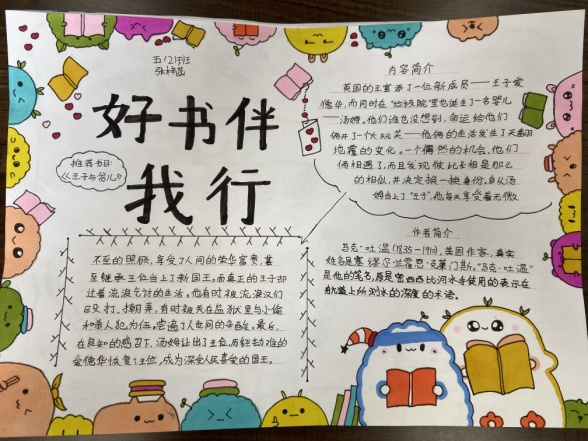 五(2)班
好书伴
我行
推荐书目:
《王子与贫儿》
内容简介
英国的王室添了一位新成员——王子爱
德华,而同时在"垃圾院"里也诞生了一名婴儿
——汤姆。他们谁也没想到,命运给他们
俩开了个大玩笑——他俩的生活发生了天翻
地覆的变化。一个偶然的机会,他们
俩相遇了,而且发现彼此长相是那么
的相似,并决定换一换身份。自从汤
姆当上了"王子",他每天享受着无微
不至的照顾,享受了人间的荣华富贵,甚
至继承王位当上了新国王。而真正的王子却
过着流浪乞讨的生活。他有时被流浪汉们
殴打、嘲弄,有时被关在监狱里与小偷
和杀人犯为伍。尝遍了人世间的辛酸。最后,
在良知的感召下,汤姆让出了王位,而经劫难的
爱德华恢复了王位,成为深受人民喜爱的国王。
作者简介
马克·吐温(1835-1910),美国作家,真实
姓名是塞缪尔·兰霍恩·克莱门斯。"马克·吐温"
是他的笔名,原是密西西比河水手使用的表示在
航道上所测水的深度的术语。